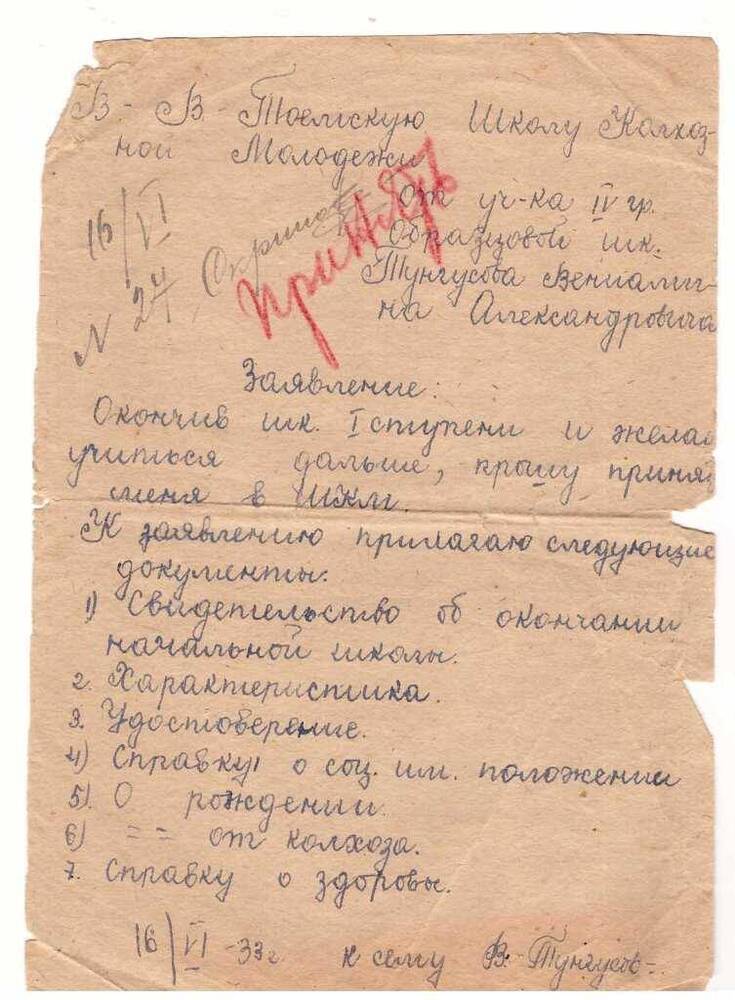 В-В-Тоемскую Школу Колхоз-
ной Молодежи
16/VI
N 24
принять
От уч-ка IV гр.
Образцовой шк.
Тунгусова Вениами-
на Александровича
Заявление:
Окончив шк. I ступени и желая
учиться дальше, прошу приня
меня в ШКМ.
К заявлению прилагаю следующие
документы:
1) Свидетельство об окончании
начальной школы.
2. Характеристика.
3. Удостоверение.
4) Справку о соц. им. положении
5). О рождении.
6) == от колхоза.
7. Справку о здоровы.
16/VI-33г к сему В-Тунгусов-